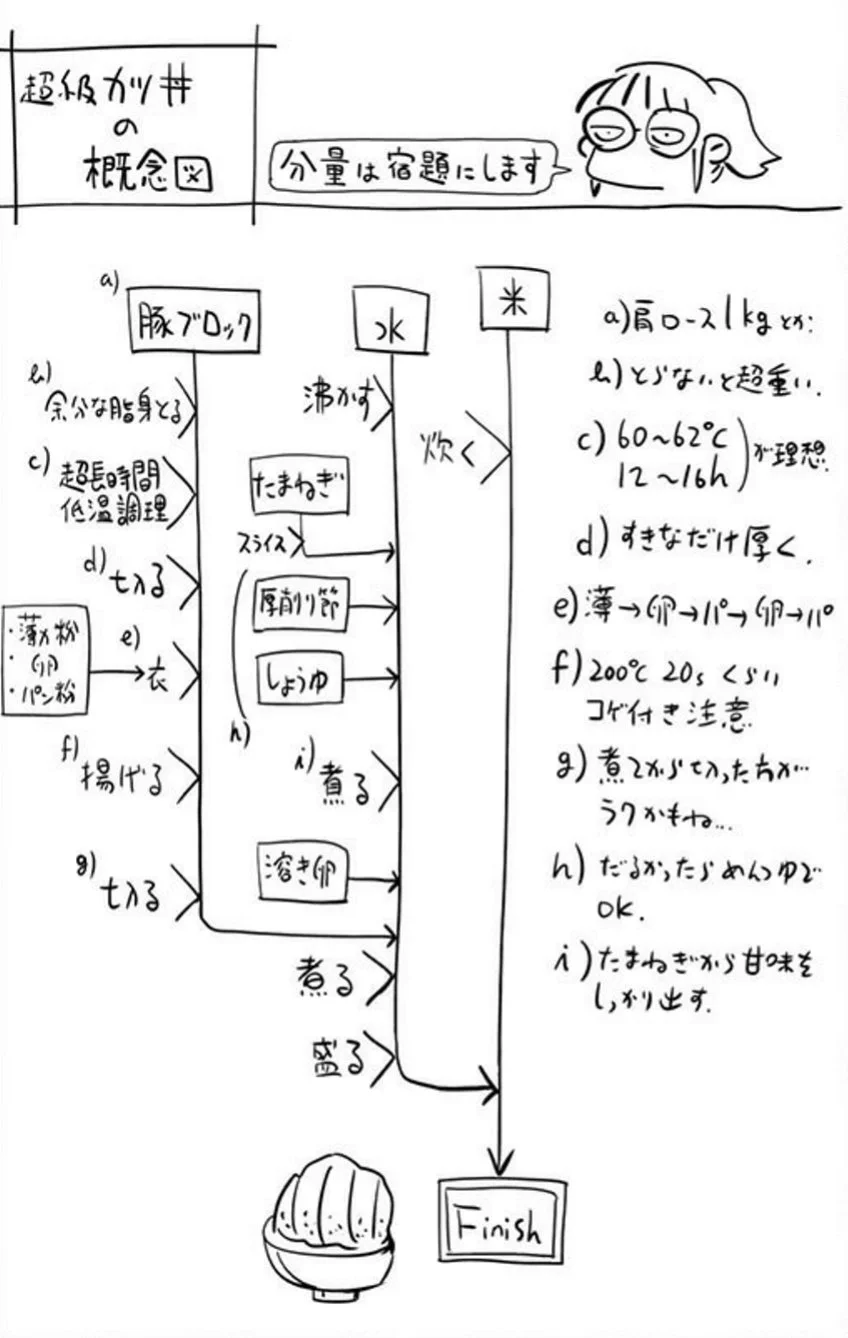 超級カツ丼
の
概念図
分量は宿題にします
a)
豚ブロック
水
米
b)
余分な脂身とる
沸かす
炊く
c)
超長時間
低温調理
たまねぎ
スライス
d)
切る
厚削り節
・薄力粉
・卵
・パン粉
e)
衣
しょうゆ
h)
f)
揚げる
i)
煮る
g)
切る
溶き卵
煮る
盛る
Finish
a)肩ロース1kgとか。
b)とらないと超重い。
c)60~62℃
12~16h
が理想
d)すきなだけ厚く。
e)薄→卵→パ→卵→パ
f)200℃ 20sくらい
コゲ付き注意
g)煮てから切った方が…
ラクかもね…
h)だるかったらめんつゆで
OK.
i)たまねぎから甘味を
しっかり出す。